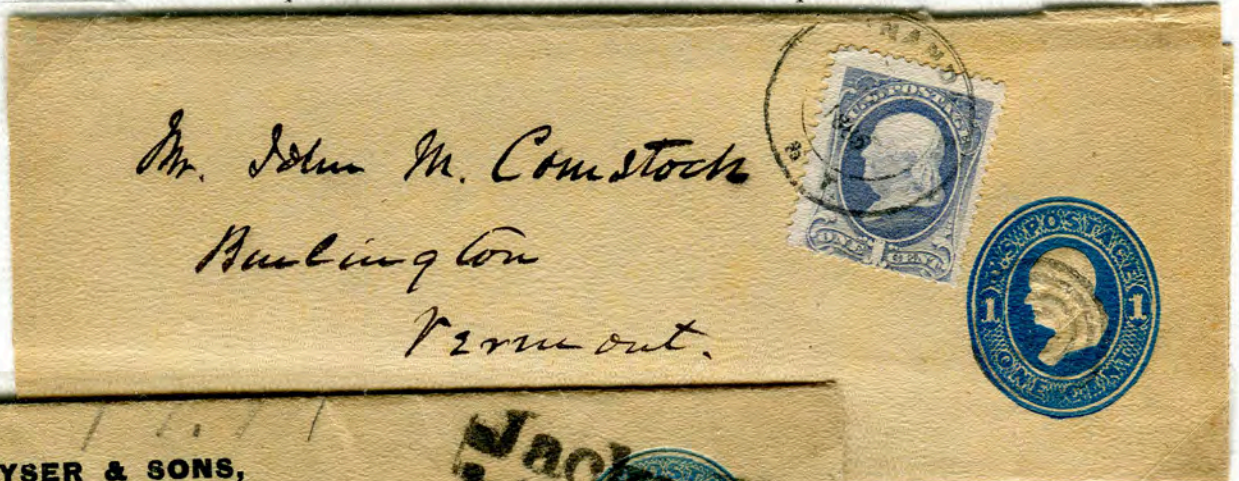 Mr. John M. Comstock
Burlington
Vermont.
NAND
U.S. POSTAGE
ONE 1 CENT
U.S. POSTAGE
1 1
YSER & SONS,
Jack